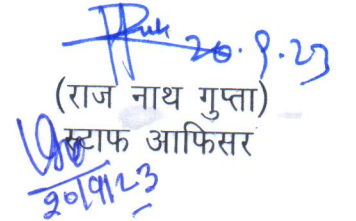 20.9.23
(राज नाथ गुप्ता)
स्टाफ आफिसर
20/9/23